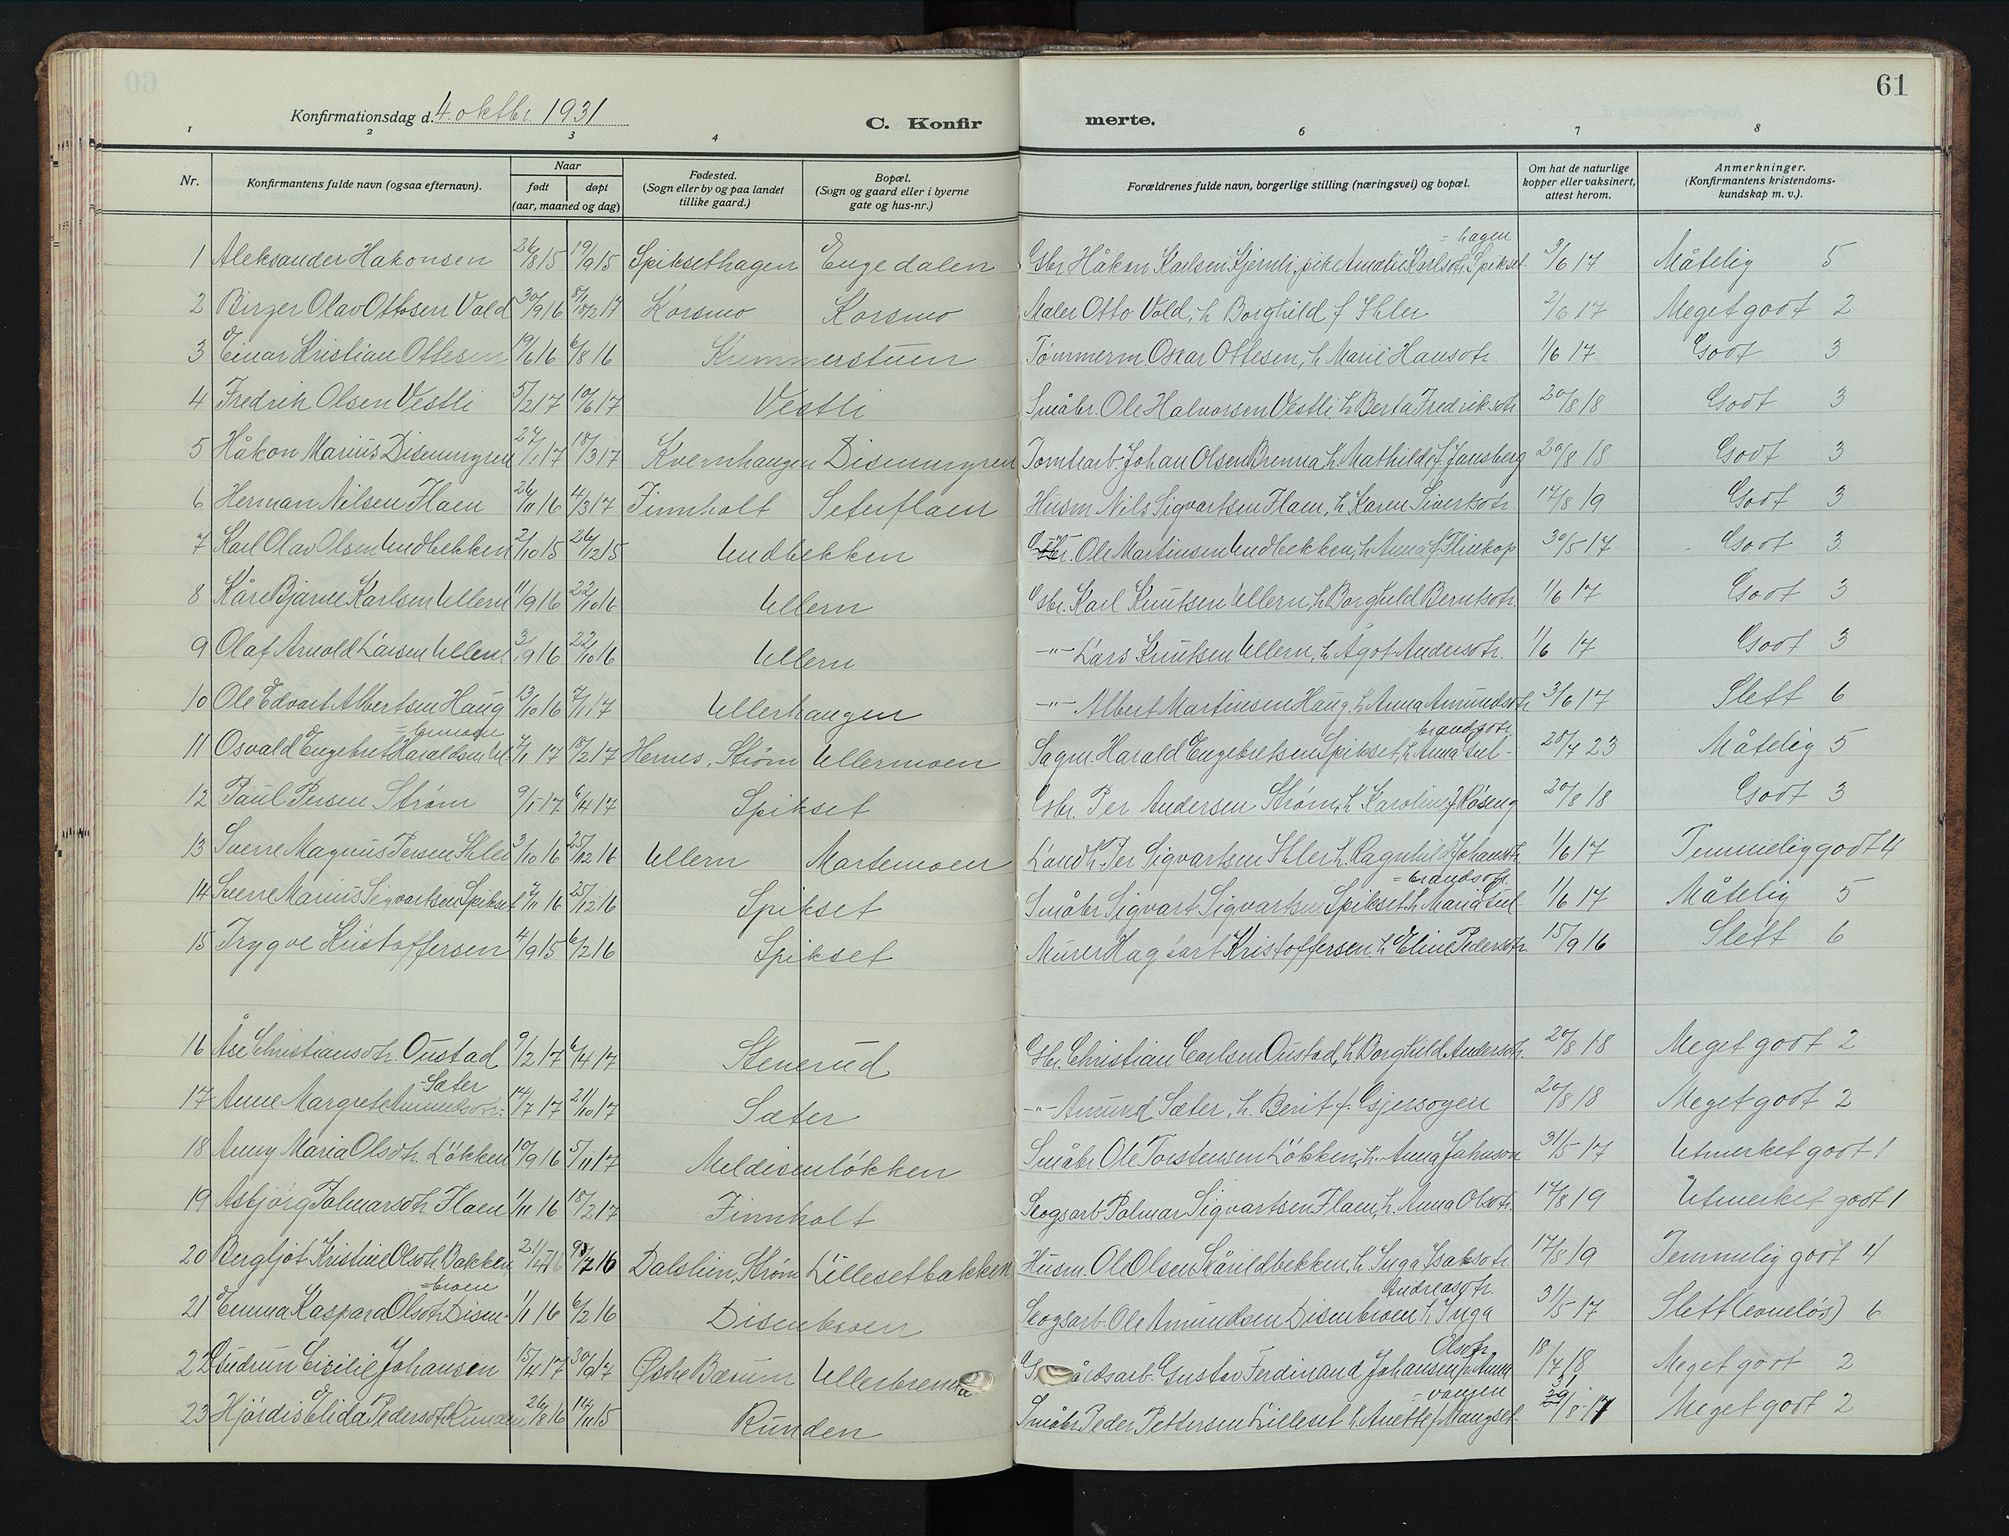 61
Konfirmationsdag d. 4. oktbr 1931
C. Konfir merte.
1 2 3 4 6 7 8
Nr. Konfirmantens fulde navn (ogsaa efternavn). Naar født døpt (aar, maaned og dag) Fødested. (Sogn eller by og paa landet tillike gaard.) Bopæl. (Sogn og gaard eller i byerne gate og hus-nr.) Forældrenes fulde navn, borgerlige stilling (næringsvei) og bopæl. Om hat de naturlige kopper eller vaksinert, attest herom. Anmerkninger. (Konfirmantens kristendoms-kundskap m. v.).
1 Aleksander Hakonsen 26/8 15 19/9 15 Spiksethagen Engedalen Gbr. Håkon Karlsen Kjernli, pike Amalie Karlsdtr. Spikset=hagen 3/6 17 Måtelig 5
2 Birger Olav Ottosen Vold 30/9 16 Korsmo Korsmo Maler Otto Vold, h Borghild f Ihler 2/6 17 Meget godt 2
3 Einar Kristian Ottesen 19/6 16 6/8 16 Kremmerstuen Tømmerm. Oscar Ottesen, h Marie Hansdtr. 1/6 17 Godt 3
4 Fredrik Olsen Vestli 5/2 17 10/6 17 Vestli Småbr. Ole Halvorsen Vestli h Berta Fredriksdtr 20/8 18 Godt 3
5 Håkon Marius Disenmyren 27/1 17 18/3 17 Kvernhaugen Disenmyren Tomtearb. Johan Olsen Brenna h Mathilde f Jansberg 20/8 18 Godt 3
6 Herman Nilsen Flaen 26/11 16 4/3 17 Finnholt Seterflaen Husm Nils Sigvartsen Flaen, h Karen Sivertsdtr. 17/8 19 Godt 3
7 Karl Olav Olsen Undbekken 2/10 15 26/12 15 Undbekken Gbr. Ole Martinsen Undbekken, h Anna f Flinkop 30/5 17 Godt 3
8 Kåre Bjarne Karlsen Ullern 11/9 16 22/10 16 Ullern Gbr. Karl Knutsen Ullern, h Borghild Berntsdtr. 1/6 17 Godt 3
9 Olaf Arnold Larsen Ullern 3/9 16 22/10 16 Ullern -"- Lars Knutsen Ullern, h Ågot Andersdtr. 1/6 17 Godt 3
10 Ole Edvart Albertsen Haug 13/10 16 7/1 17 Ullerhaugen -"- Albert Martinsen Haug h Anna Amundsdtr 3/6 17 Slett 6
11 Osvald Engebret Haraldsen Ul=lermoen 7/1 17 18/2 17 Hernes, Strøm Ullermoen Sagm. Harald Engebretsen Spikset, h Anna Gul-brandsdtr. 20/4 23 Måtelig 5
12 Paul Persen Strøm 9/1 17 6/4 17 Spikset Gbr. Per Andersen Strøm, h Karoline f Røseng 20/8 18 Godt 3
13 Sverre Magnus Persen Ihler 3/10 16 25/12 16 Ullern Martemoen Landh. Per Sigvartsen Ihler h. Ragnhild Johansdtr 1/6 17 Temmelig godt 4
14 Sverre Marius Sigvartsen Spikset 7/11 16 25/12 16 Spikset Småbr Sigvart Sigvartsen Spikset h Maria Gul=brandsdtr. 1/6 17 Måtelig 5
15 Trygve Kristoffersen 4/9 15 6/2 16 Spikset Murer Hagbart Kristoffersen, h Eline Pedersdtr 15/9 16 Slett 6
16 Åse Christiansdtr. Oustad 9/2 17 6/4 17 Stenerud Gbr. Christian Carlsen Oustad, h Borghild Andersdtr. 20/8 18 Meget godt 2
17 Anne Margrete Amundsdtr. Sæter 14/7 17 21/10 17 Sæter -"- Amund Sæter, h. Berit f. Gjersøyen 20/8 18 Meget godt 2
18 Anny Maria Olsdtr. Løkken 10/9 16 5/11 17 Meldisenløkken Småbr Ole Torstensen Løkken, h. Anna Johnson 31/5 17 Utmerket godt 1
19 Asbjørg Palmarsdtr Flaen 1/11 16 18/2 17 Finnholt Skogsarb. Palmar Sigvartsen Flaen, h Anna Olsdtr. 17/8 19 Utmerket godt 1
20 Bergljot Kristine Olsdtr Bakken Dalslien, Strøm Lillesetbakken Husm. Ol Olsen Skårildbekken, h Inga Isaksdtr. 17/8 19 Temmelig godt 4
21 Emma Kaspara Olsdtr Disen=broen 1/1 16 6/2 16 Disenbroen Skogsarb. Ole Amundsen Disenbroen h Inga Andreasdtr. 31/5 17 Slett (evneløs) 6
22 Gudrun Cicilie Johansen 15/4 17 30/9 17 Østre Bærum Ullerbrenna Gårdsarb. Gustav Ferdinand Johansen, h Anna Olsdtr. 18/7 18 Meget godt 2
23 Hjørdis Elida Pedersdtr Runden 26/8 16 14/11 15 Runden Småbr Peder Pettersen Lilleset h. Anette f Mangset=vangen 17 Meget godt 2